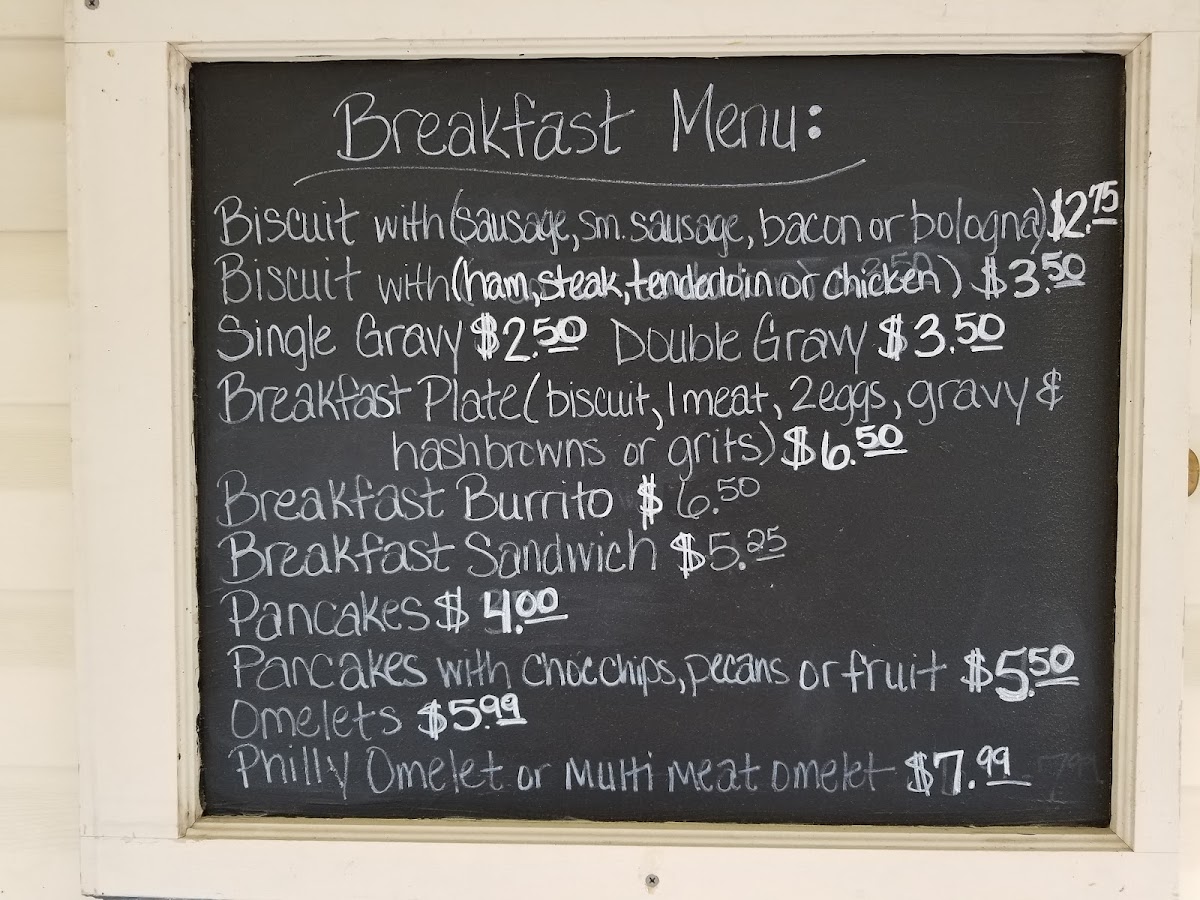 Breakfast Menu:
Biscuit with (sausage, sm. sausage, bacon or bologna) $2.75
Biscuit with (ham, steak, tenderloin or chicken) $3.50
Single Gravy $2.50 Double Gravy $3.50
Breakfast Plate (biscuit, 1 meat, 2 eggs, gravy &
hashbrowns or grits) $6.50
Breakfast Burrito $6.50
Breakfast Sandwich $5.25
Pancakes $4.00
Pancakes with choc chips, pecans or fruit $5.50
Omelets $5.99
Philly Omelet or Multi Meat omelet $7.99